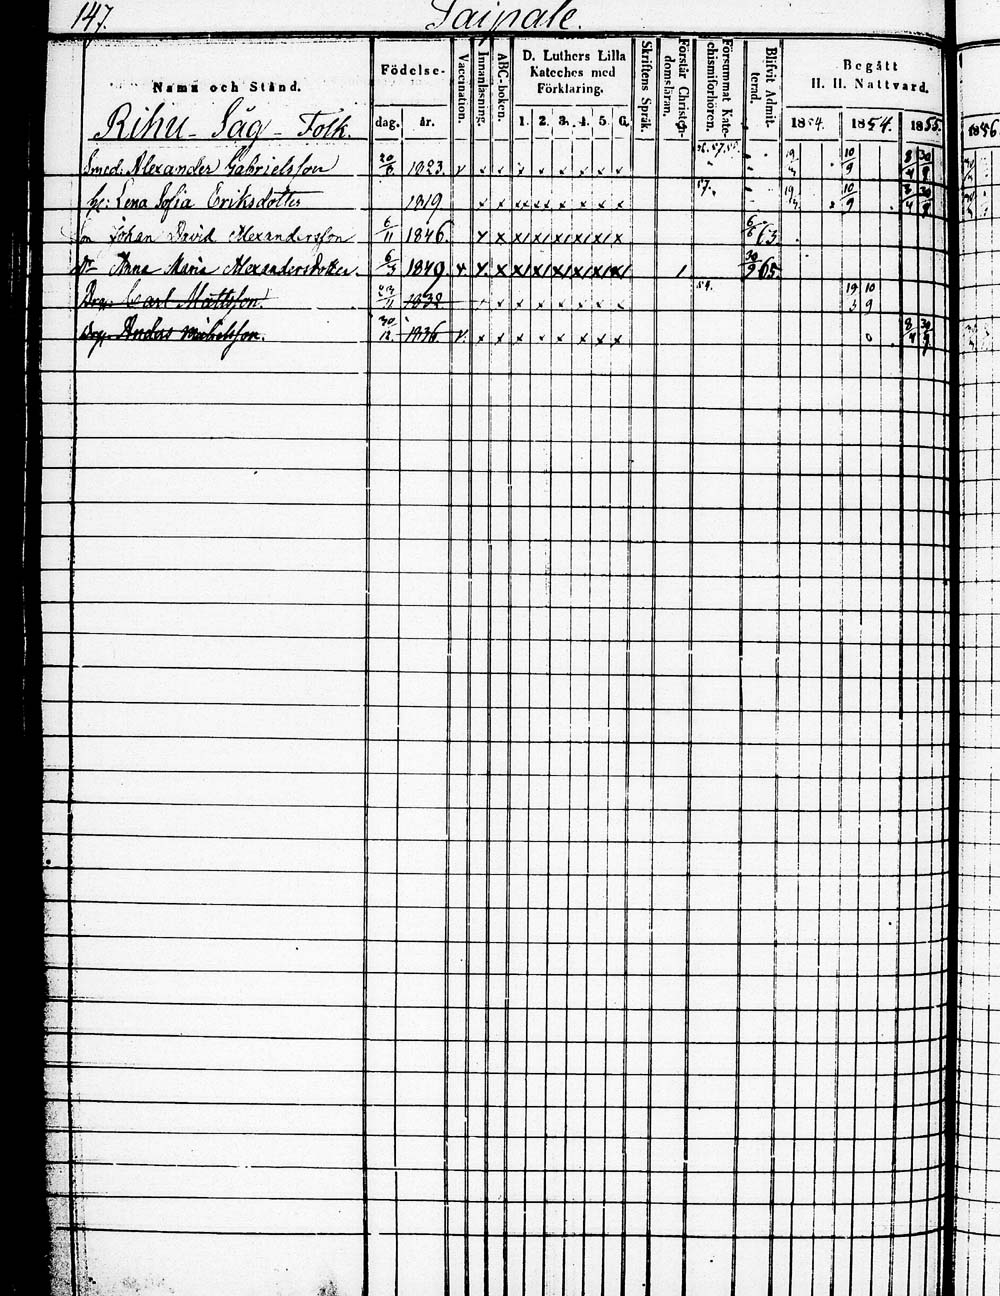 147. Saipale.
Namn och Stånd. Födelse- dag. år. Vaccination. Innanläsning. ABC-boken. D. Luthers Lilla Kateches med Förklaring. 1. 2. 3. 4. 5. 6. Skriftens Språk. Förstår Christendomsläran. Försummat Katechismiförhören. Blifvit Admitterad. Begått H. H. Nattvard. 1854. 1854. 1855. 1856
Rihu-Såg-Folk.
Smed: Alexander Gabrielsson 20/6 1823. v x x x x x x x x 56. 57. 58. 19/3 10/9 8/4 30/9
h: Lena Sofia Eriksdotter 1819 x x x x x x x x 57. 19/3 10/9 8/4 30/9
Son Johan David Alexandersson 6/11 1846. x x x x x x x x 6/6 63.
Dr Anna Maria Alexandersdotter. 6/3 1849 v x x x x x x x x / 30/9 65.
Drg. Carl Mattsson. 23/11 1832 x x x x x x x 54. 19/3 10/9
Drg. Anders Michelsson. 30/12 1836 v. x x x x x x x x 0 8/4 30/9